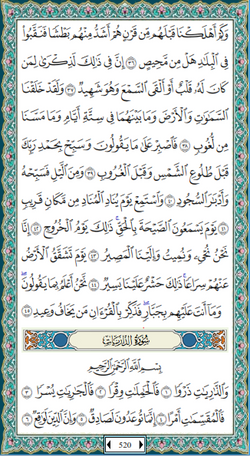 وَكَمْ أَهْلَكْنَا قَبْلَهُم مِّن قَرْنٍ هُمْ أَشَدُّ مِنْهُم بَطْشًا فَنَقَّبُوا۟
فِى ٱلْبِلَـٰدِ هَلْ مِن مَّحِيصٍ ٣٦ إِنَّ فِى ذَٰلِكَ لَذِكْرَىٰ لِمَن
كَانَ لَهُۥ قَلْبٌ أَوْ أَلْقَى ٱلسَّمْعَ وَهُوَ شَهِيدٌ ٣٧ وَلَقَدْ خَلَقْنَا
ٱلسَّمَـٰوَٰتِ وَٱلْأَرْضَ وَمَا بَيْنَهُمَا فِى سِتَّةِ أَيَّامٍ وَمَا مَسَّنَا
مِن لُّغُوبٍ ٣٨ فَٱصْبِرْ عَلَىٰ مَا يَقُولُونَ وَسَبِّحْ بِحَمْدِ رَبِّكَ
قَبْلَ طُلُوعِ ٱلشَّمْسِ وَقَبْلَ ٱلْغُرُوبِ ٣٩ وَمِنَ ٱلَّيْلِ فَسَبِّحْهُ
وَأَدْبَـٰرَ ٱلسُّجُودِ ٤٠ وَٱسْتَمِعْ يَوْمَ يُنَادِ ٱلْمُنَادِ مِن مَّكَانٍ قَرِيبٍ
٤١ يَوْمَ يَسْمَعُونَ ٱلصَّيْحَةَ بِٱلْحَقِّ ۚ ذَٰلِكَ يَوْمُ ٱلْخُرُوجِ ٤٢ إِنَّا
نَحْنُ نُحْىِۦ وَنُمِيتُ وَإِلَيْنَا ٱلْمَصِيرُ ٤٣ يَوْمَ تَشَقَّقُ ٱلْأَرْضُ
عَنْهُمْ سِرَاعًا ۚ ذَٰلِكَ حَشْرٌ عَلَيْنَا يَسِيرٌ ٤٤ نَّحْنُ أَعْلَمُ بِمَا يَقُولُونَ ۖ
وَمَآ أَنتَ عَلَيْهِم بِجَبَّارٍ ۖ فَذَكِّرْ بِٱلْقُرْءَانِ مَن يَخَافُ وَعِيدِ ٤٥
سُورَةُ الذَّارِيَاتِ
بِسْمِ ٱللَّهِ ٱلرَّحْمَـٰنِ ٱلرَّحِيمِ
وَٱلذَّٰرِيَـٰتِ ذَرْوًا ١ فَٱلْحَـٰمِلَـٰتِ وِقْرًا ٢ فَٱلْجَـٰرِيَـٰتِ يُسْرًا ٣
فَٱلْمُقَسِّمَـٰتِ أَمْرًا ٤ إِنَّمَا تُوعَدُونَ لَصَادِقٌ ٥ وَإِنَّ ٱلدِّينَ لَوَٰقِعٌ ٦
520